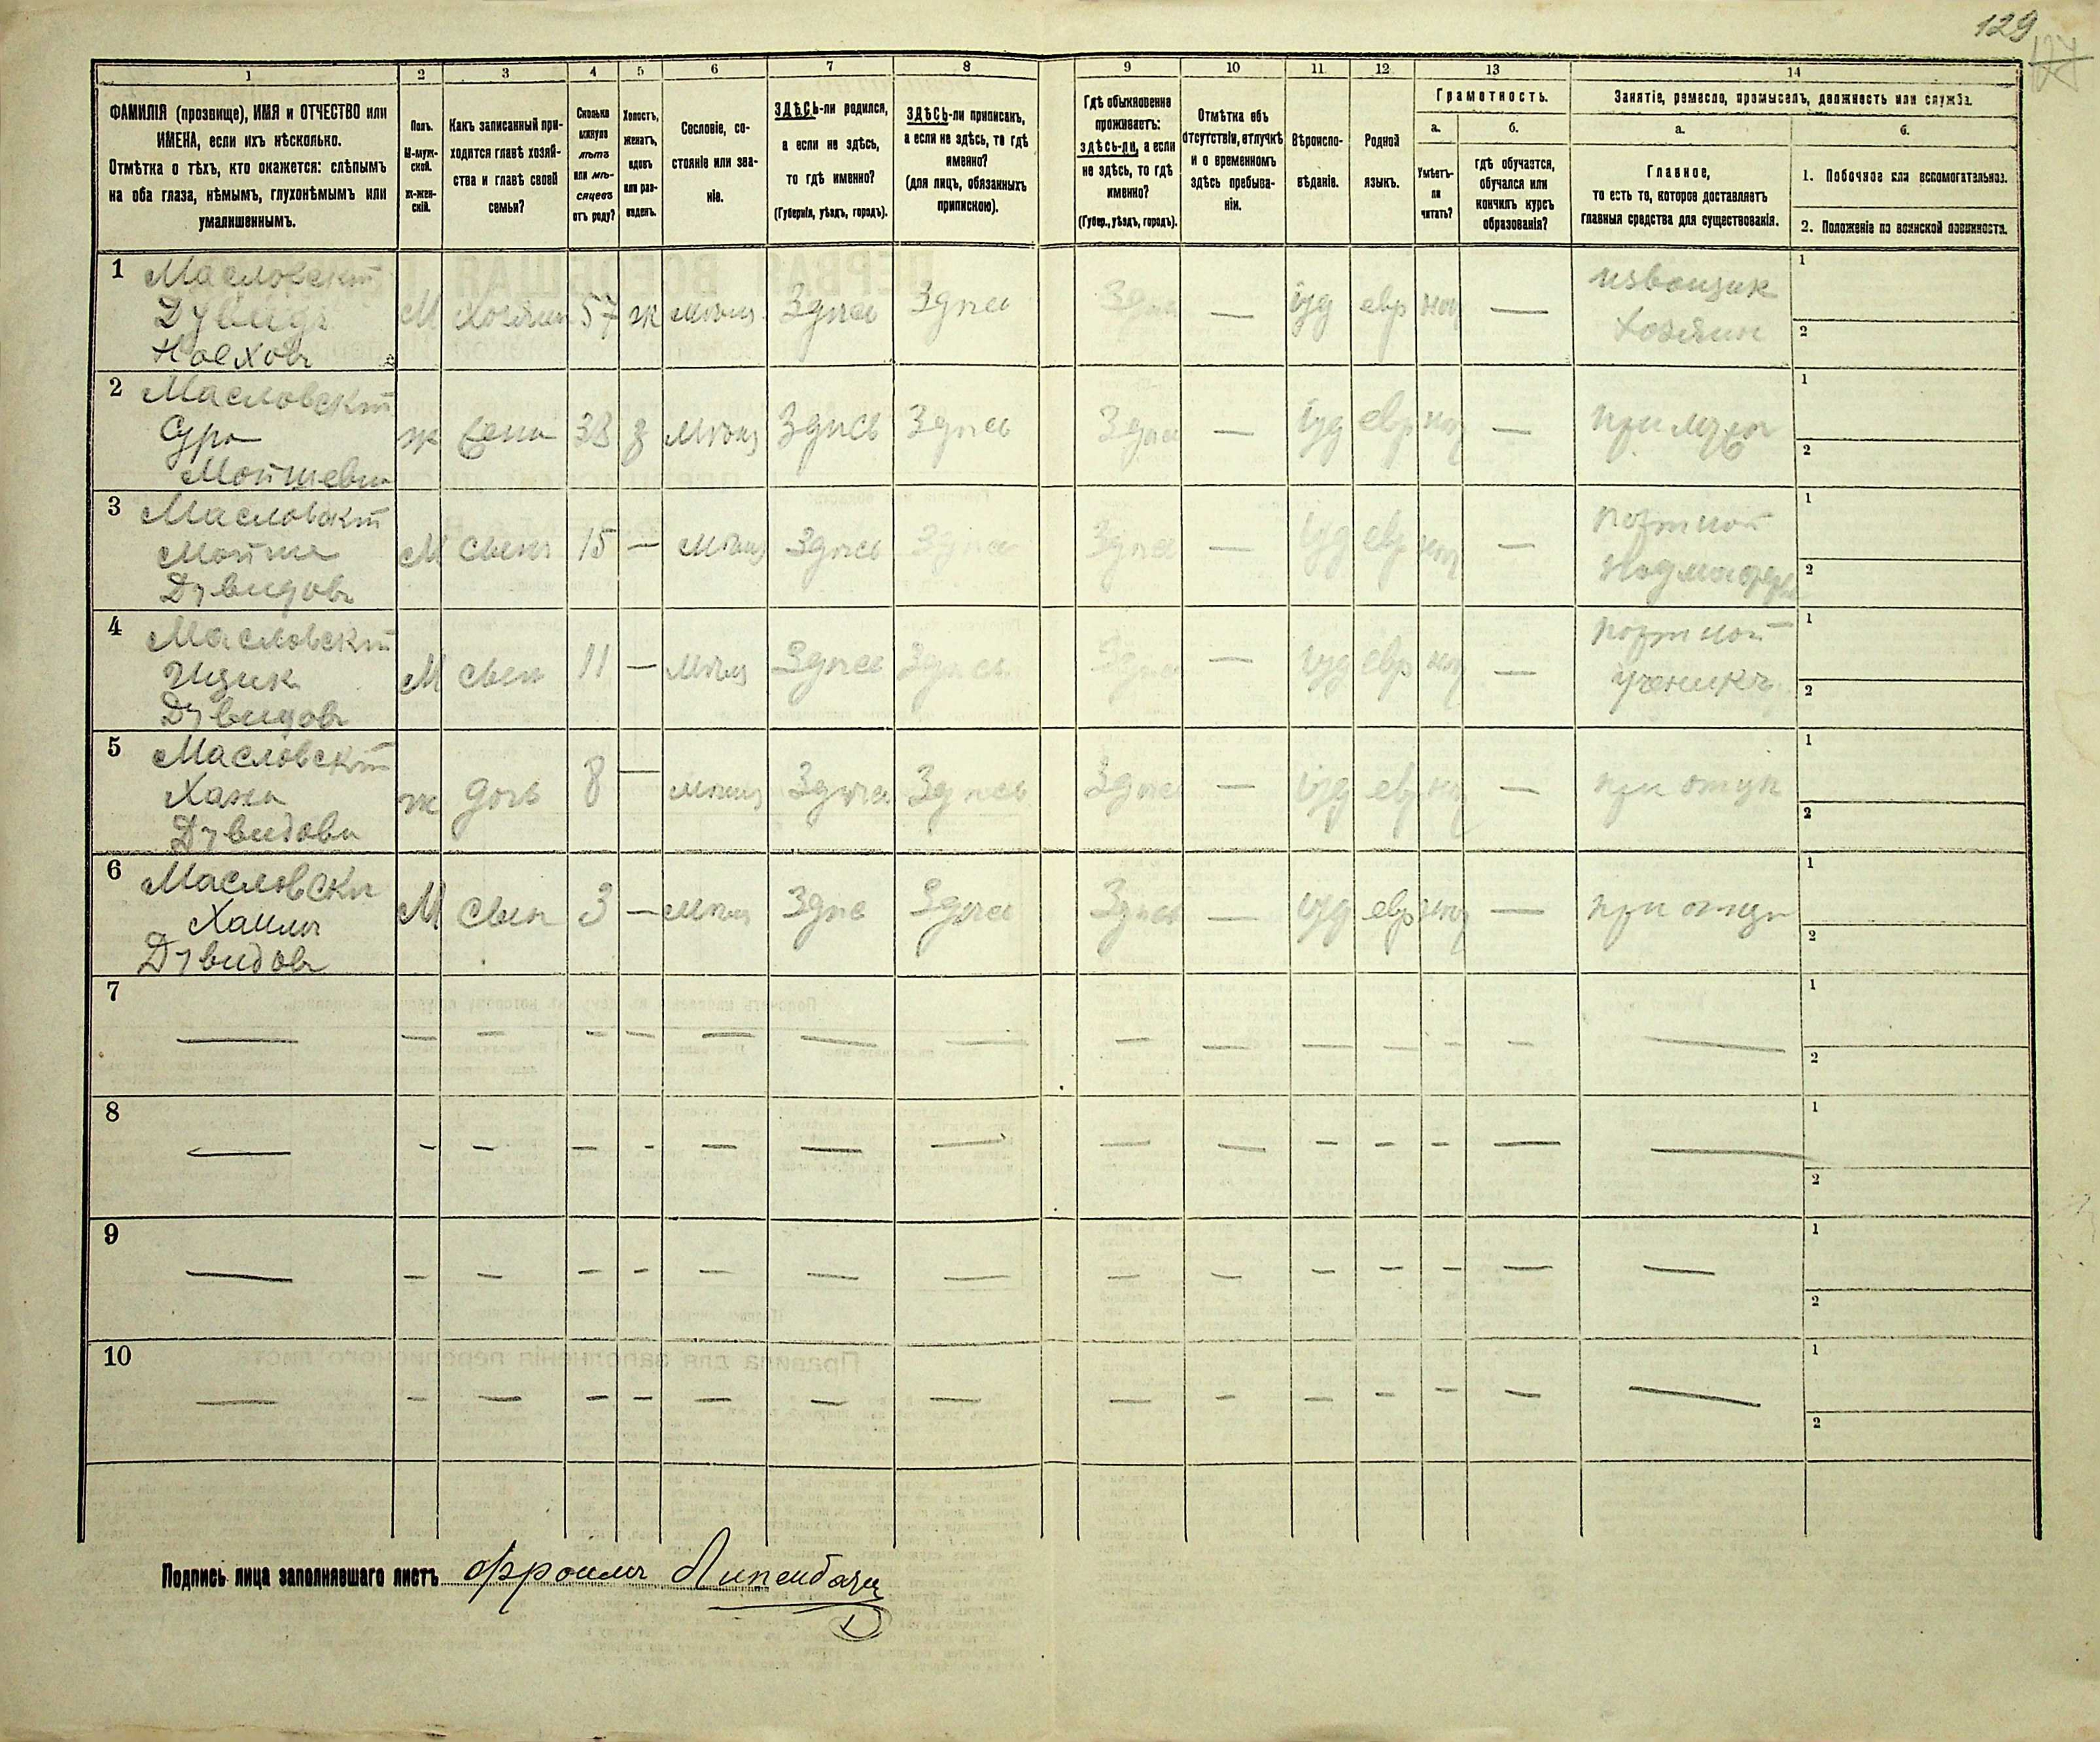 129
1 2 3 4 5 6 7 8 9 10 11 12 13 14
ФАМИЛІЯ (прозвище), ИМЯ и ОТЧЕСТВО или
ИМЕНА, если ихъ нѣсколько.
Отмѣтка о тѣхъ, кто окажется: слѣпымъ
на оба глаза, нѣмымъ, глухонѣмымъ или
умалишеннымъ.
Полъ.
М-муж-
ской.
ж-жен-
скій.
Какъ записанный при-
ходится главѣ хозяй-
ства и главѣ своей
семьи?
Сколько
минуло
лѣтъ
или мѣ-
сяцевъ
отъ роду?
Холостъ,
женатъ,
вдовъ
или раз-
веденъ.
Сословіе, со-
стояніе или зва-
ніе.
ЗДѢСЬ-ли родился,
а если не здѣсь,
то гдѣ именно?
(Губернія, уѣздъ, городъ).
ЗДѢСЬ-ли приписанъ,
а если не здѣсь, то гдѣ
именно?
(для лицъ, обязанныхъ
припискою).
Гдѣ обыкновенно
проживаетъ:
здѣсь-ли, а если
не здѣсь, то гдѣ
именно?
(Губер., уѣздъ, городъ).
Отмѣтка объ
отсутствіи, отлучкѣ
и о временномъ
здѣсь пребыва-
ніи.
Вѣроиспо-
вѣданіе.
Родной
языкъ.
Грамотность.
а.
Умѣетъ-
ли
читать?
б.
гдѣ обучается,
обучался или
кончилъ курсъ
образованія?
Занятіе, ремесло, промыселъ, должность или служба.
а.
Главное,
то есть то, которое доставляетъ
главныя средства для существованія.
б.
1. Побочное или вспомогательное.
2. Положеніе по воинской повинности.
1 Масловскій М Хозяин 57 ж Мѣщ Здпсь Здпсь Здпсь — іуд евр — извощик 1
Дувидъ хозяин 2
Ноехов
2 Масловскій ж 38 з Мѣщ Здпсь Здпсь Здпсь — іуд евр — 1
Сура 2
Мойшевна
3 Масловскій М Сынъ 15 — Мѣщ Здпсь Здпсь Здпсь — іуд евр — портной 1
Мойше 2
Дувидовъ
4 Масловскій М сын 11 — Мѣщ Здпсь Здпсь Здпсь — іуд евр — портной 1
Ицик ученикъ 2
Дувидовъ
5 Масловскій ж дочь 8 — Мѣщ Здпсь Здпсь Здпсь — іуд евр — при отцп 1
Хана 2
Дувидовна
6 Масловски М Сын 3 — Мѣщ Здпсь Здпсь Здпсь — іуд евр — при отцп 1
Хаимъ 2
Дувидовъ
7 — — — — — — — — — — — — — — — 1
2
8 — — — — — — — — — — — — — — — 1
2
9 — — — — — — — — — — — — — — — 1
2
10 — — — — — — — — — — — — — — — 1
2
Подпись лица заполнявшаго листъ Фроимъ